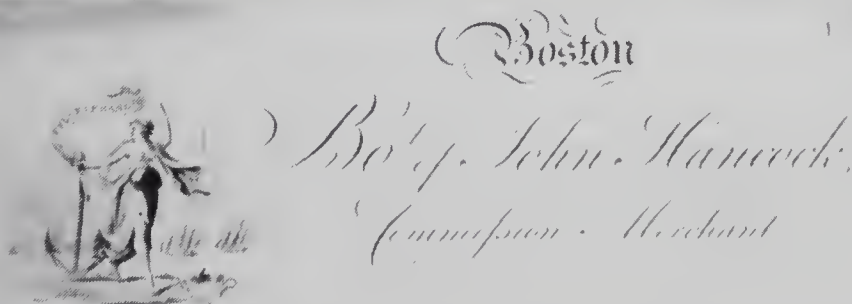 Boston
Bo't of John Hancock.
Commission Merchant